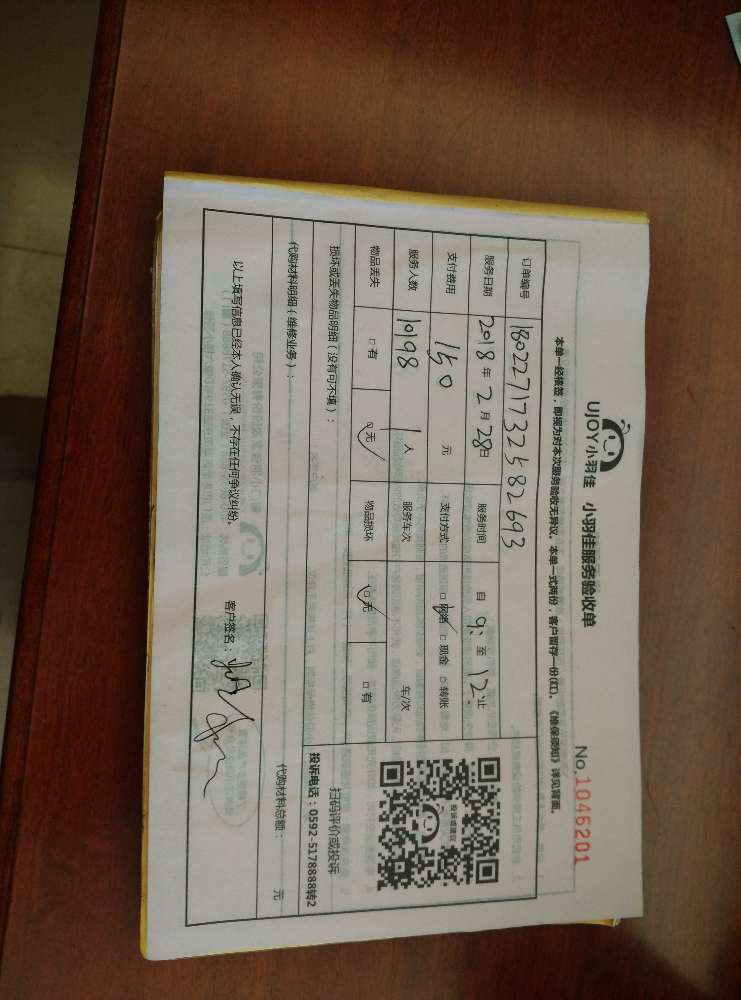 UJOY小羽佳 小羽佳服务验收单
No.1046201
本单一经信签，即视为对本次服务验收无异议。本单一式两份，客户留存一份(红)。《维保须知》详见背面。
订单编号 180227173258 2693
服务日期 2018 年 2 月 28 日 服务时间 自 9: 至 12: 止
支付费用 150 元 支付方式 □ 网络 □ 现金 □ 转账
服务人数 10198 1 人 服务车次 车/次
物品丢失 □ 有 □ 无 物品损坏 □ 无 □ 有
投诉或建议
扫码评价或投诉
投诉电话：0592-5178888转2
损坏或丢失物品明细（没有可不填）：
代购材料明细（维修业务）：
代购材料总额： 元
以上填写信息已经本人确认无误，不存在任何争议纠纷。
客户签名：